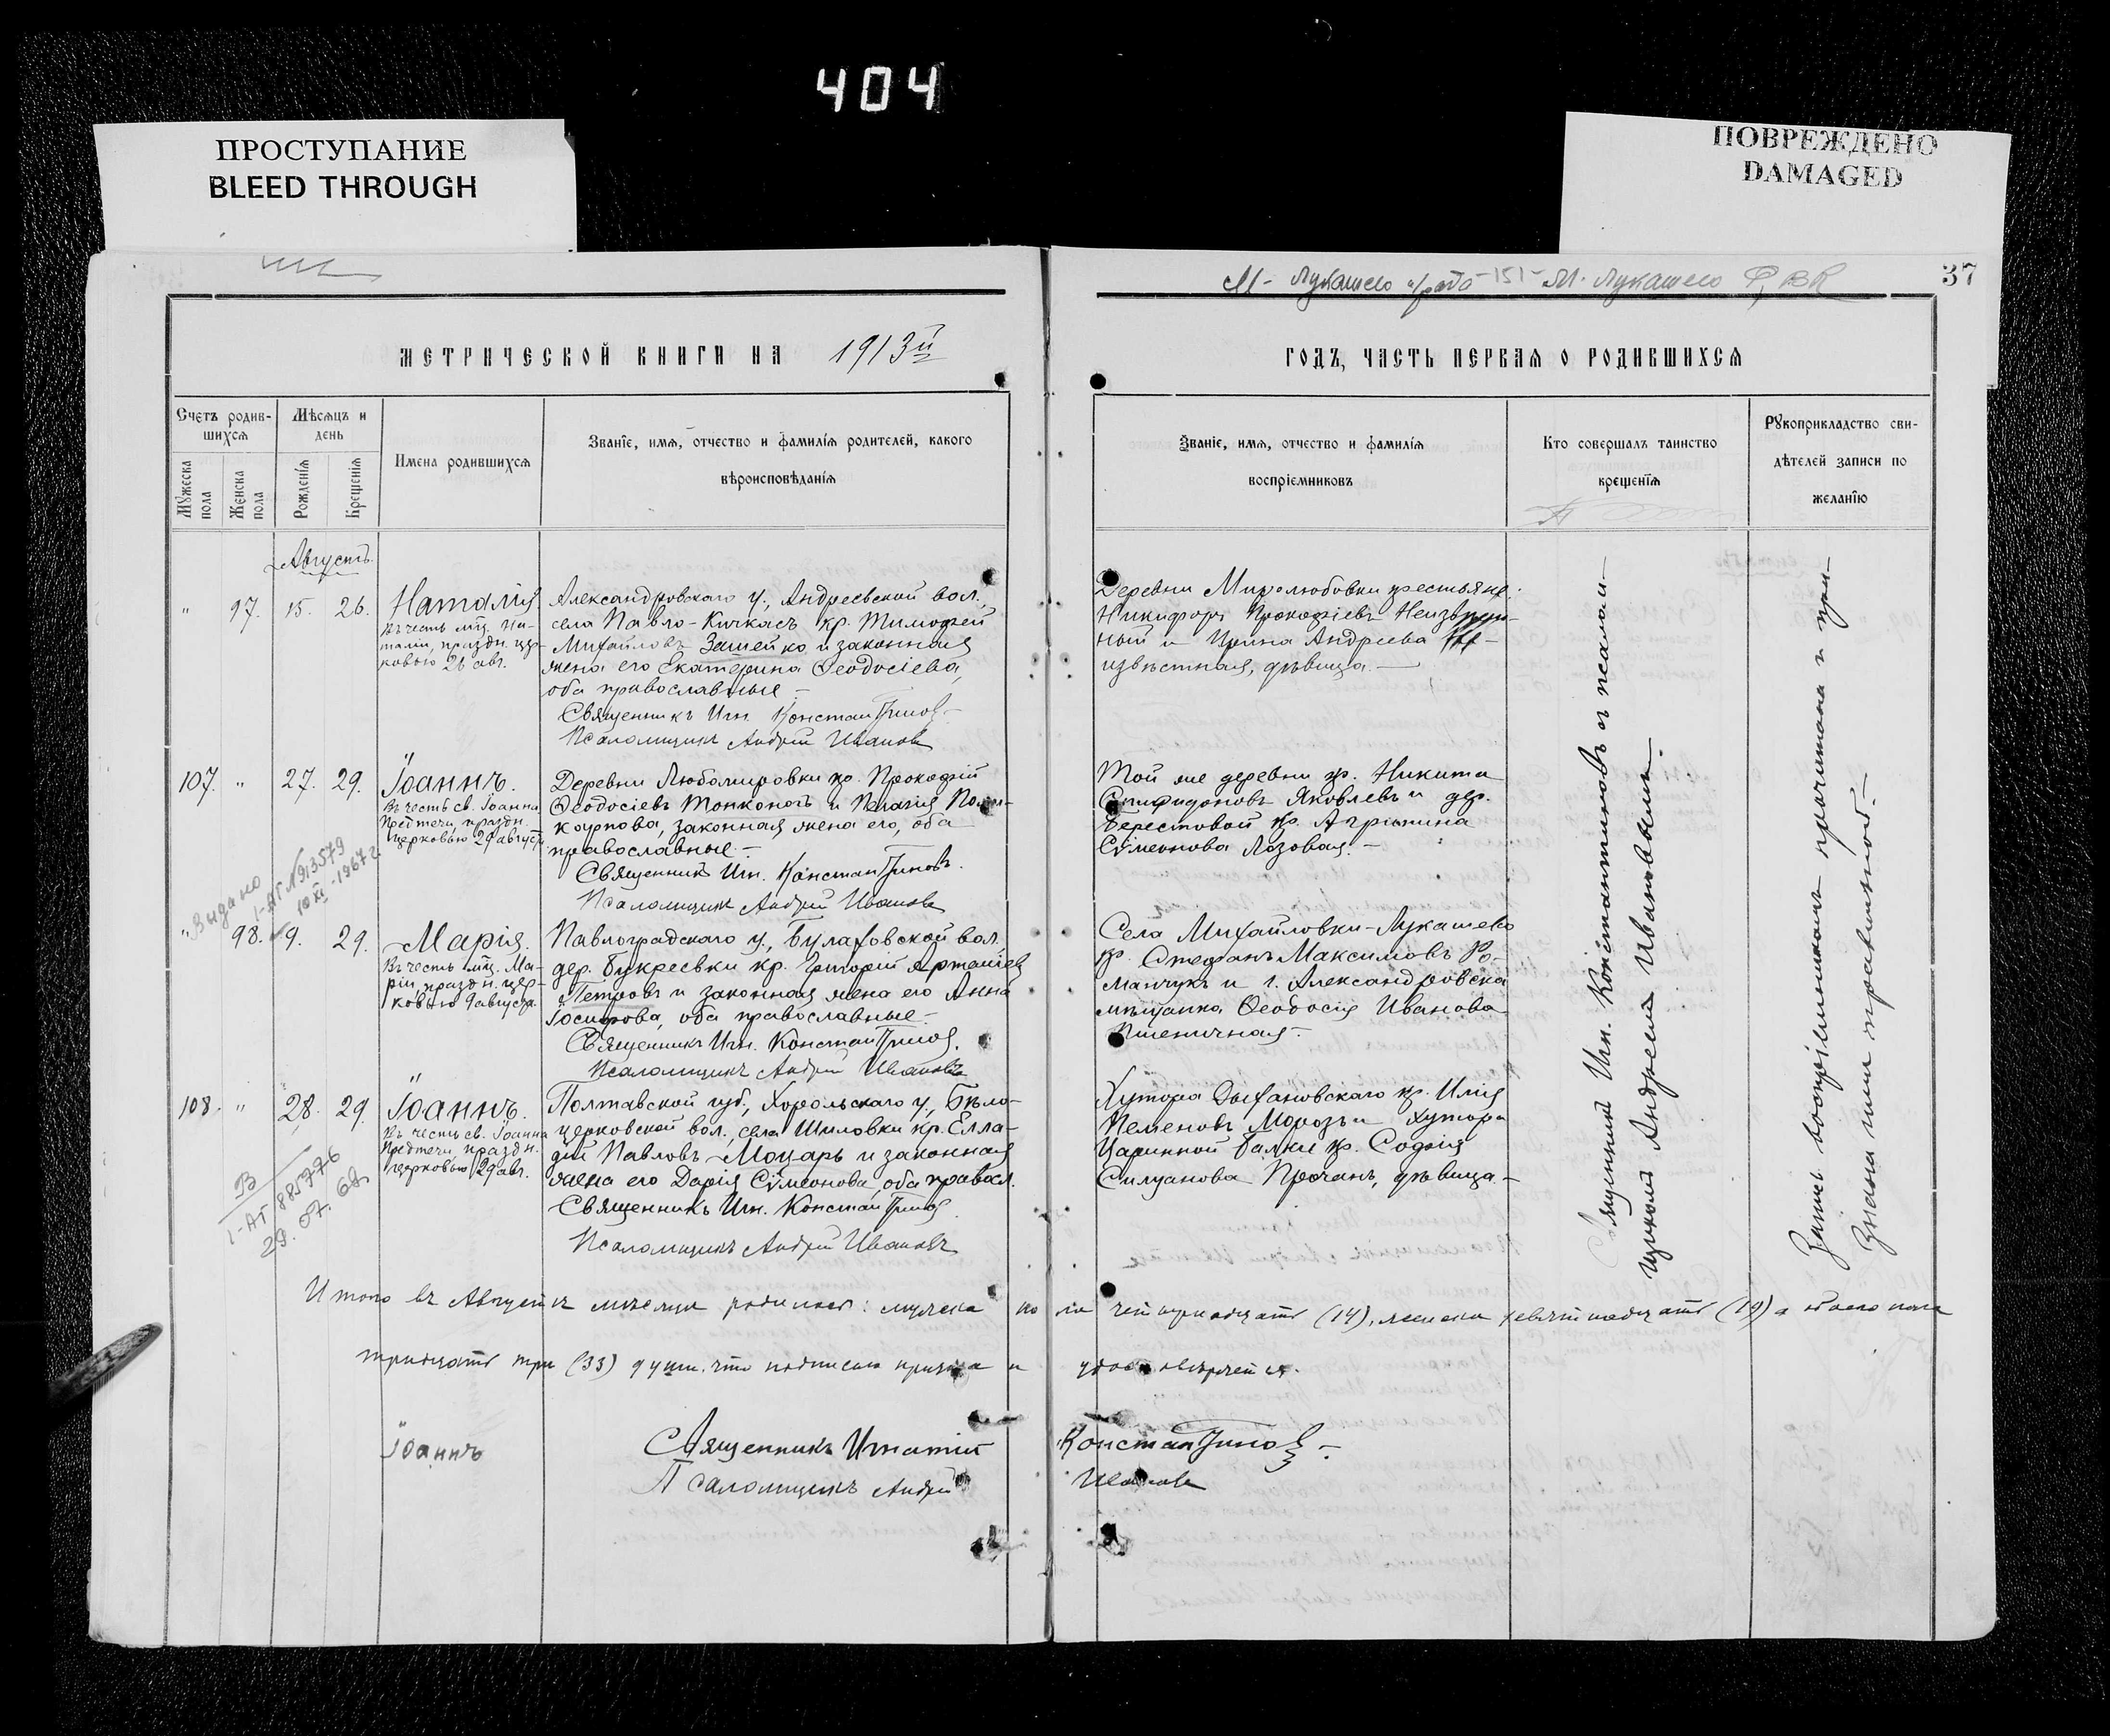 404
ПРОСТУПАНИЕ
BLEED THROUGH
ПОВРЕЖДЕНО
DAMAGED
М- Лукашево -151- М. Лукашево
37
МЕТРИЧЕСКОЙ КНИГИ НА 1913й
ГОДЪ, ЧАСТЬ ПЕРВАЯ О РОДИВШИХСЯ
Счетъ родив-
шихся
Мужеска пола
Женска пола
Мѣсяцъ и
день
Рожденія
Крещенія
Имена родившихся
Званіе, имя, отчество и фамилія родителей, какого
вѣроисповѣданія
Званіе, имя, отчество и фамилія
воспріемниковъ
Кто совершалъ таинство
крещенія
Рукоприкладство сви-
дѣтелей записи по
желанію
Августъ
" 97. 15. 26. Наталія
Въ честь мц. На-
таліи, праздн. цер-
ковью 26 авг.
Александровскаго у., Андреевской вол.,
села Павло-Кичкасъ кр. Тимофей
Михайловъ Зашейко и законная
жена его Екатерина Ѳеодосіева,
оба православные –
Священникъ Игн. Константиновъ –
Псаломщикъ Андрей Ивановъ
Деревни Миролюбовки крестьяне:
Никифоръ Прокофіевъ Неизвѣст-
ный и Ирина Андреева Не-
извѣстная, дѣвица. –
107. " 27. 29. Іоаннъ.
Въ честь св. Іоанна
Предтечи, праздн.
церковью 29 августа
Деревни Любомировки кр. Прокофій
Ѳеодосіевъ Тонконогъ и Пелагія Поли-
карпова, законная жена его, оба
православные –
Священникъ Игн. Константиновъ.
Псаломщикъ Андрей Ивановъ
Той же деревни кр. Никита
Спиридоновъ Яковлевъ и дер.
Берестовой кр. Агрипина
Сѵмеонова Лозовая. –
Выдано
I-АГ №913579
10 XI - 1967 г.
" 98. 9. 29. Марія.
Въ честь мц. Ма-
ріи, праздн. цер-
ковью 9 августа.
Павлоградскаго у., Булаховской вол.
дер. Букреевки кр. Григорій Артаміев
Петровъ и законная жена его Анна
Іосифова, оба православные –
Священникъ Игн. Константиновъ.
Псаломщикъ Андрей Ивановъ
Села Михайловки-Лукашево
кр. Стефанъ Максимовъ Ро-
манчукъ и г. Александровска
мѣщанка Ѳеодосія Иванова
Пшеничная –
108. " 28. 29. Іоаннъ.
Въ честь св. Іоанна
Предтечи, праздн.
церковью 29 авг.
Полтавской губ., Хорольскаго у., Бѣло-
церковской вол., села Шиловки кр. Елла-
дій Павловъ Моцарь и законная
жена его Дарія Сѵмеонова, оба правосл.
Священникъ Игн. Константиновъ
Псаломщикъ Андрей Ивановъ
Хутора кр. Илія
Пеменовъ Морозъ и хутора
Царинной балки кр. Софія
Силуанова Прочанъ, дѣвица –
В
I-АГ 885376
29. 07. 68
Священникъ Игн. Константиновъ съ псалом-
щикомъ Андреемъ Ивановымъ. –
Запись воспріемникамъ прочитана и при-
знана ими правильной. –
Итого въ Августѣ мѣсяцѣ родилось: мужска пола четырнадцать (14), женска девятнадцать (19) а обоего пола
тридцать три (33) души. что подписью причта и удостовѣряется.
Іоаннъ
Священникъ Игнатій Константиновъ –
Псаломщикъ Андрей Ивановъ